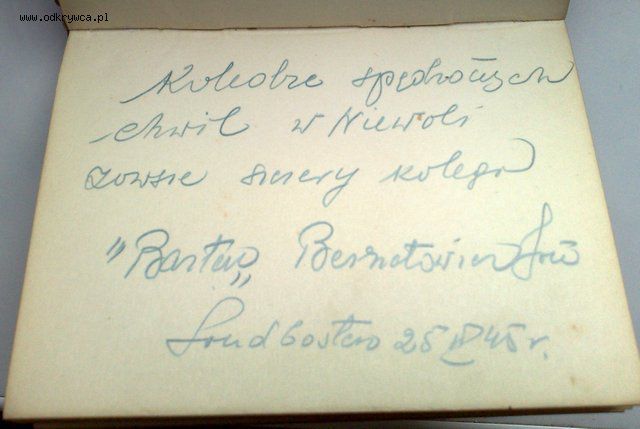 www.odkrywca.pl
Koledze spędzonych
chwil w Niewoli
zawsze szczery kolega
"Bartek" Bernatowicz
Sandbostel 25 IV 45 r.